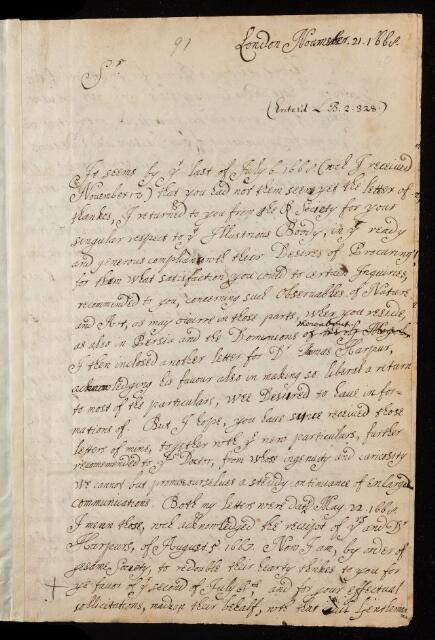 91
London Nouember. 21. 1668.
Sr.
(Enter'd L. B. 2. 328.)
It seems by yr last of July 6. 1668 (wch I received
Nouember 12) that you had not then seen yet the letter of
thankes, I returned to you from the R. Society for your
singular respect to yt Illustrious Boody, in yr ready
and generous compliance with their Desires of Procuring
for them what satisfaction you could to certain Inquiries,
recommended to you, concerning such Observables of Nature
and Art, as may occurre in those parts, wher you reside,
as also in Persia and the Dominions of
I then inclosed another letter for Dr. James Harpur,
acknowledging his favour also in making so liberal a return
to most of the particulars, wee Desired to have in for-
mations of. But I hope, you have since received those
letters of mine, together with ye new particulars, further
recommended to ye Doctor, from whose ingenuity and curiosity
we cannot but promise ourselves a steddy continuance of Enlarged
communications. Both my letters were dated May. 22. 1668.
I mean those, wch acknowledged the receipt of yrs and Dr
Harpurs, of August 5t 1667. Now I am, by order of
ye same Society, to redouble their hearty thankes to you for
ye favor of yrs second of July 6th and for your effectual
sollicitations, made on their behalf, with that Gentleman